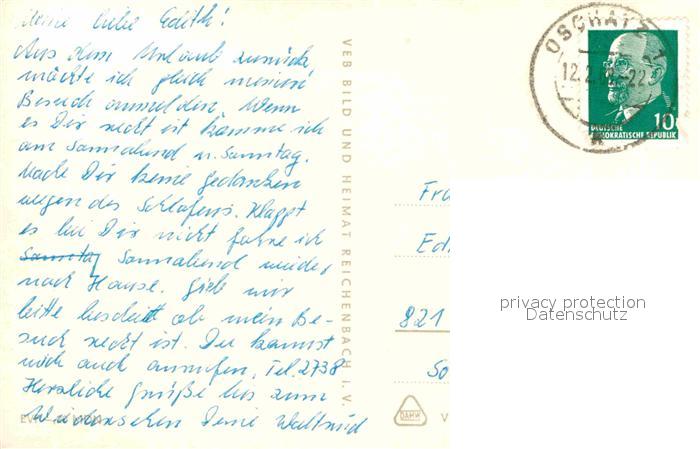 Meine liebe Edith!
Aus dem Urlaub zurück,
möchte ich gleich meinen
Besuch anmelden. Wenn
es Dir recht ist komme ich
am Sonnabend u. Sonntag.
Mache Dir keine gedanken
wegen des Schlafens. Klappt
es bei Dir nicht fahre ich
Sonnabend wieder
nach Hause. Gieb mir
bitte bescheit ob mein Be-
such recht ist. Du kannst
mich auch anrufen, Tel. 2738
Herzliche grüße bis zum
Wiedersehen Deine Waltraud
VEB BILD UND HEIMAT REICHENBACH I. V.
OSCHATZ 1
12.2
-22
10
DEUTSCHE
DEMOKRATISCHE REPUBLIK
Fra
Ed
821
So
V
privacy protection
Datenschutz